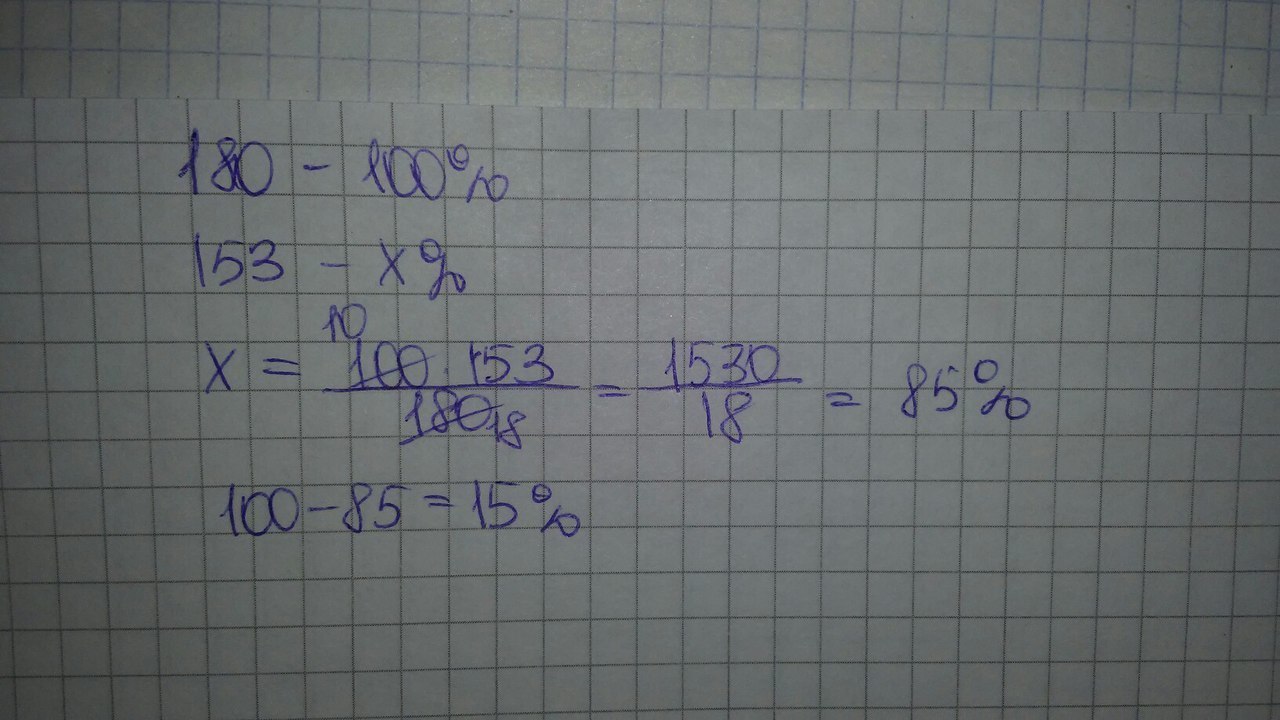 180 - 100%
153 - x%
x = 10 100 · 153 / 180 18 = 1530 / 18 = 85%
100 - 85 = 15%